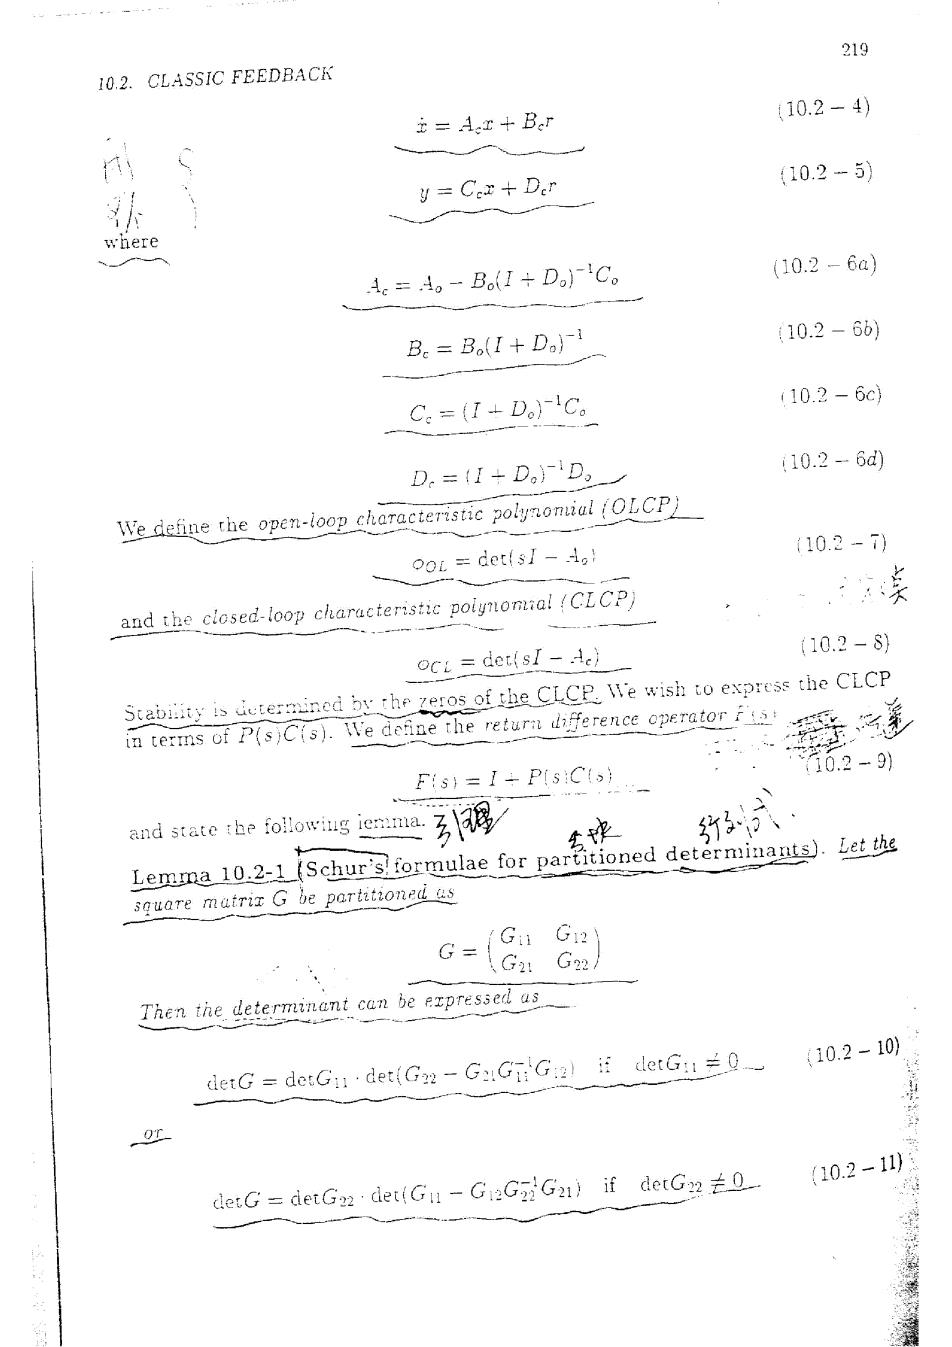 219
10.2. CLASSIC FEEDBACK
ẋ = A_c x + B_c r (10.2 − 4)
y = C_c x + D_c r (10.2 − 5)
where
A_c = A_o − B_o(I + D_o)^{-1}C_o (10.2 − 6a)
B_c = B_o(I + D_o)^{-1} (10.2 − 6b)
C_c = (I + D_o)^{-1}C_o (10.2 − 6c)
D_c = (I + D_o)^{-1}D_o (10.2 − 6d)
We define the open-loop characteristic polynomial (OLCP)
ϕ_{OL} = det(sI − A_o) (10.2 − 7)
and the closed-loop characteristic polynomial (CLCP)
ϕ_{CL} = det(sI − A_c) (10.2 − 8)
Stability is determined by the zeros of the CLCP. We wish to express the CLCP
in terms of P(s)C(s). We define the return difference operator F(s)
F(s) = I + P(s)C(s) (10.2 − 9)
and state the following lemma. 引理
行列式
Lemma 10.2-1 (Schur's formulae for partitioned determinants). Let the
square matrix G be partitioned as
G = \begin{pmatrix} G_{11} & G_{12} \\ G_{21} & G_{22} \end{pmatrix}
Then the determinant can be expressed as
detG = detG_{11} · det(G_{22} − G_{21}G_{11}^{-1}G_{12}) if detG_{11} ≠ 0 (10.2 − 10)
or
detG = detG_{22} · det(G_{11} − G_{12}G_{22}^{-1}G_{21}) if detG_{22} ≠ 0 (10.2 − 11)